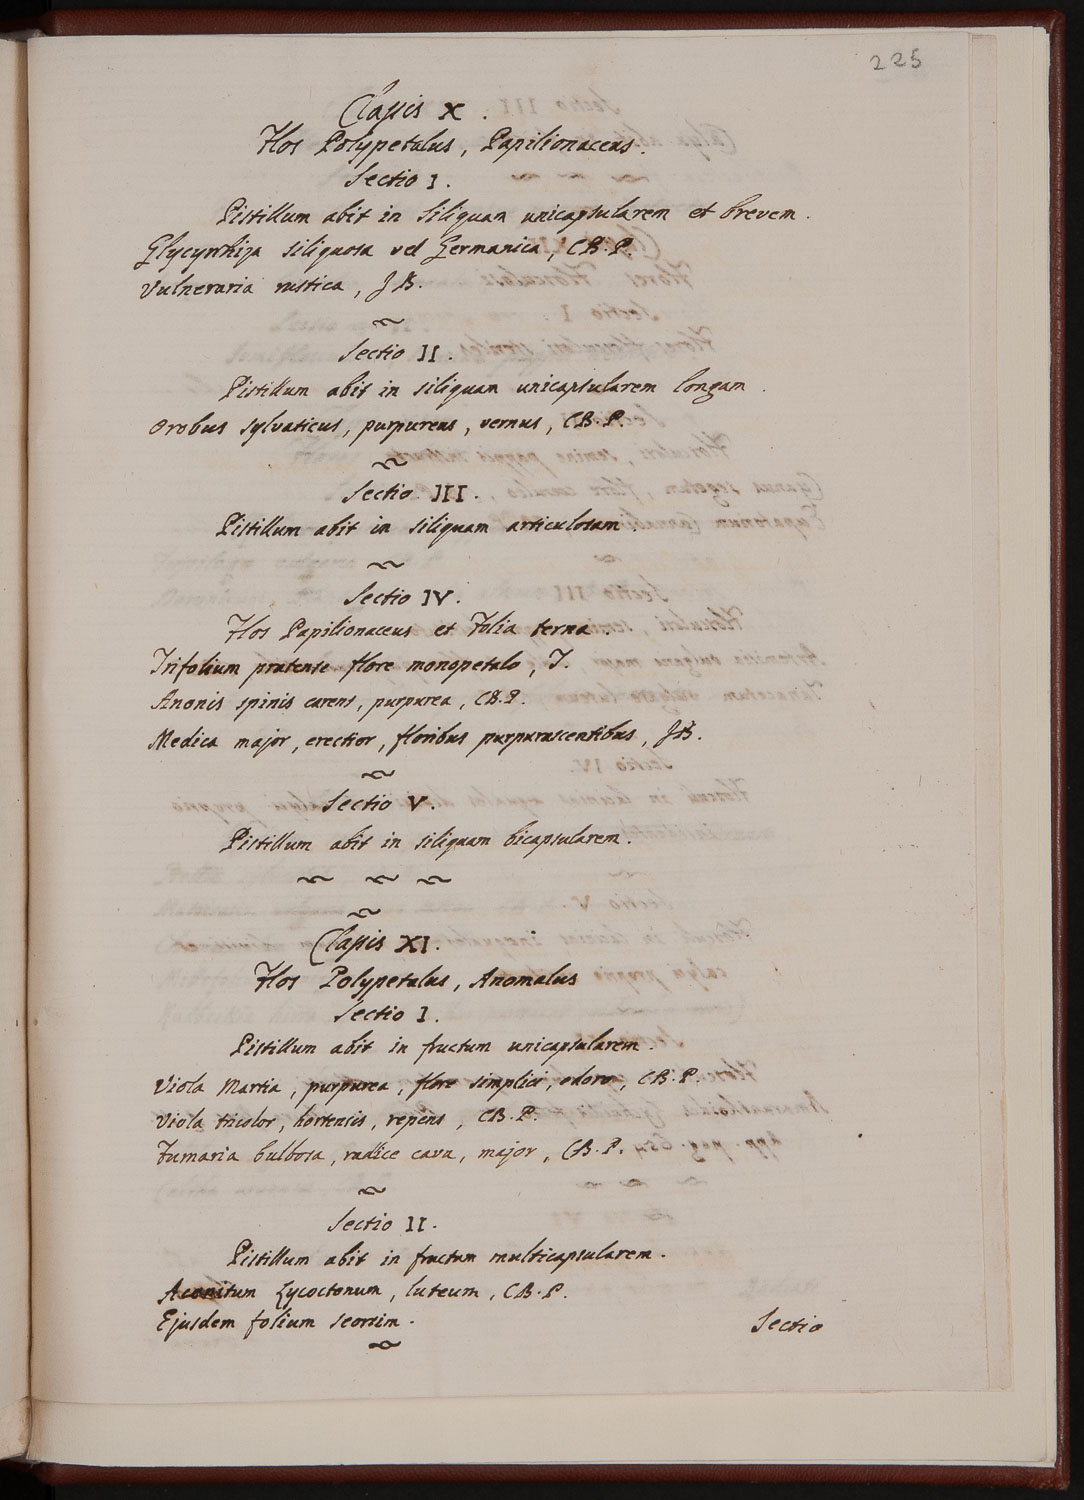 225
Classis X.
Flos Polypetalus, Papilionaceus.
Sectio I.
Pistillum abit in Siliquam unicapsularem et brevem.
Glycyrrhiza siliquosa vel Germanica, CB.P.
Vulneraria rustica, JB.
Sectio II.
Pistillum abit in siliquam unicapsularem longam.
Orobus sylvaticus, purpureus, vernus, CB.P.
Sectio III.
Pistillum abit in siliquam articulosam.
Sectio IV.
Flos Papilionaceus et Folia terna.
Trifolium pratense flore monopetalo, T.
Anonis spinis carens, purpurea, CB.P.
Medica major, erectior, floribus purpurascentibus, JB.
Sectio V.
Pistillum abit in siliquam bicapsularem.
Classis XI.
Flos Polypetalus, Anomalus
Sectio I.
Pistillum abit in fructum unicapsularem.
Viola Martia, purpurea, flore simplici, odoro, CB.P.
Viola tricolor, hortensis, repens, CB.P.
Fumaria bulbosa, radice cava, major, CB.P.
Sectio II.
Pistillum abit in fructum multicapsularem.
Aconitum Lycoctonum, luteum, CB.P.
Ejusdem folium seorsim.
Sectio